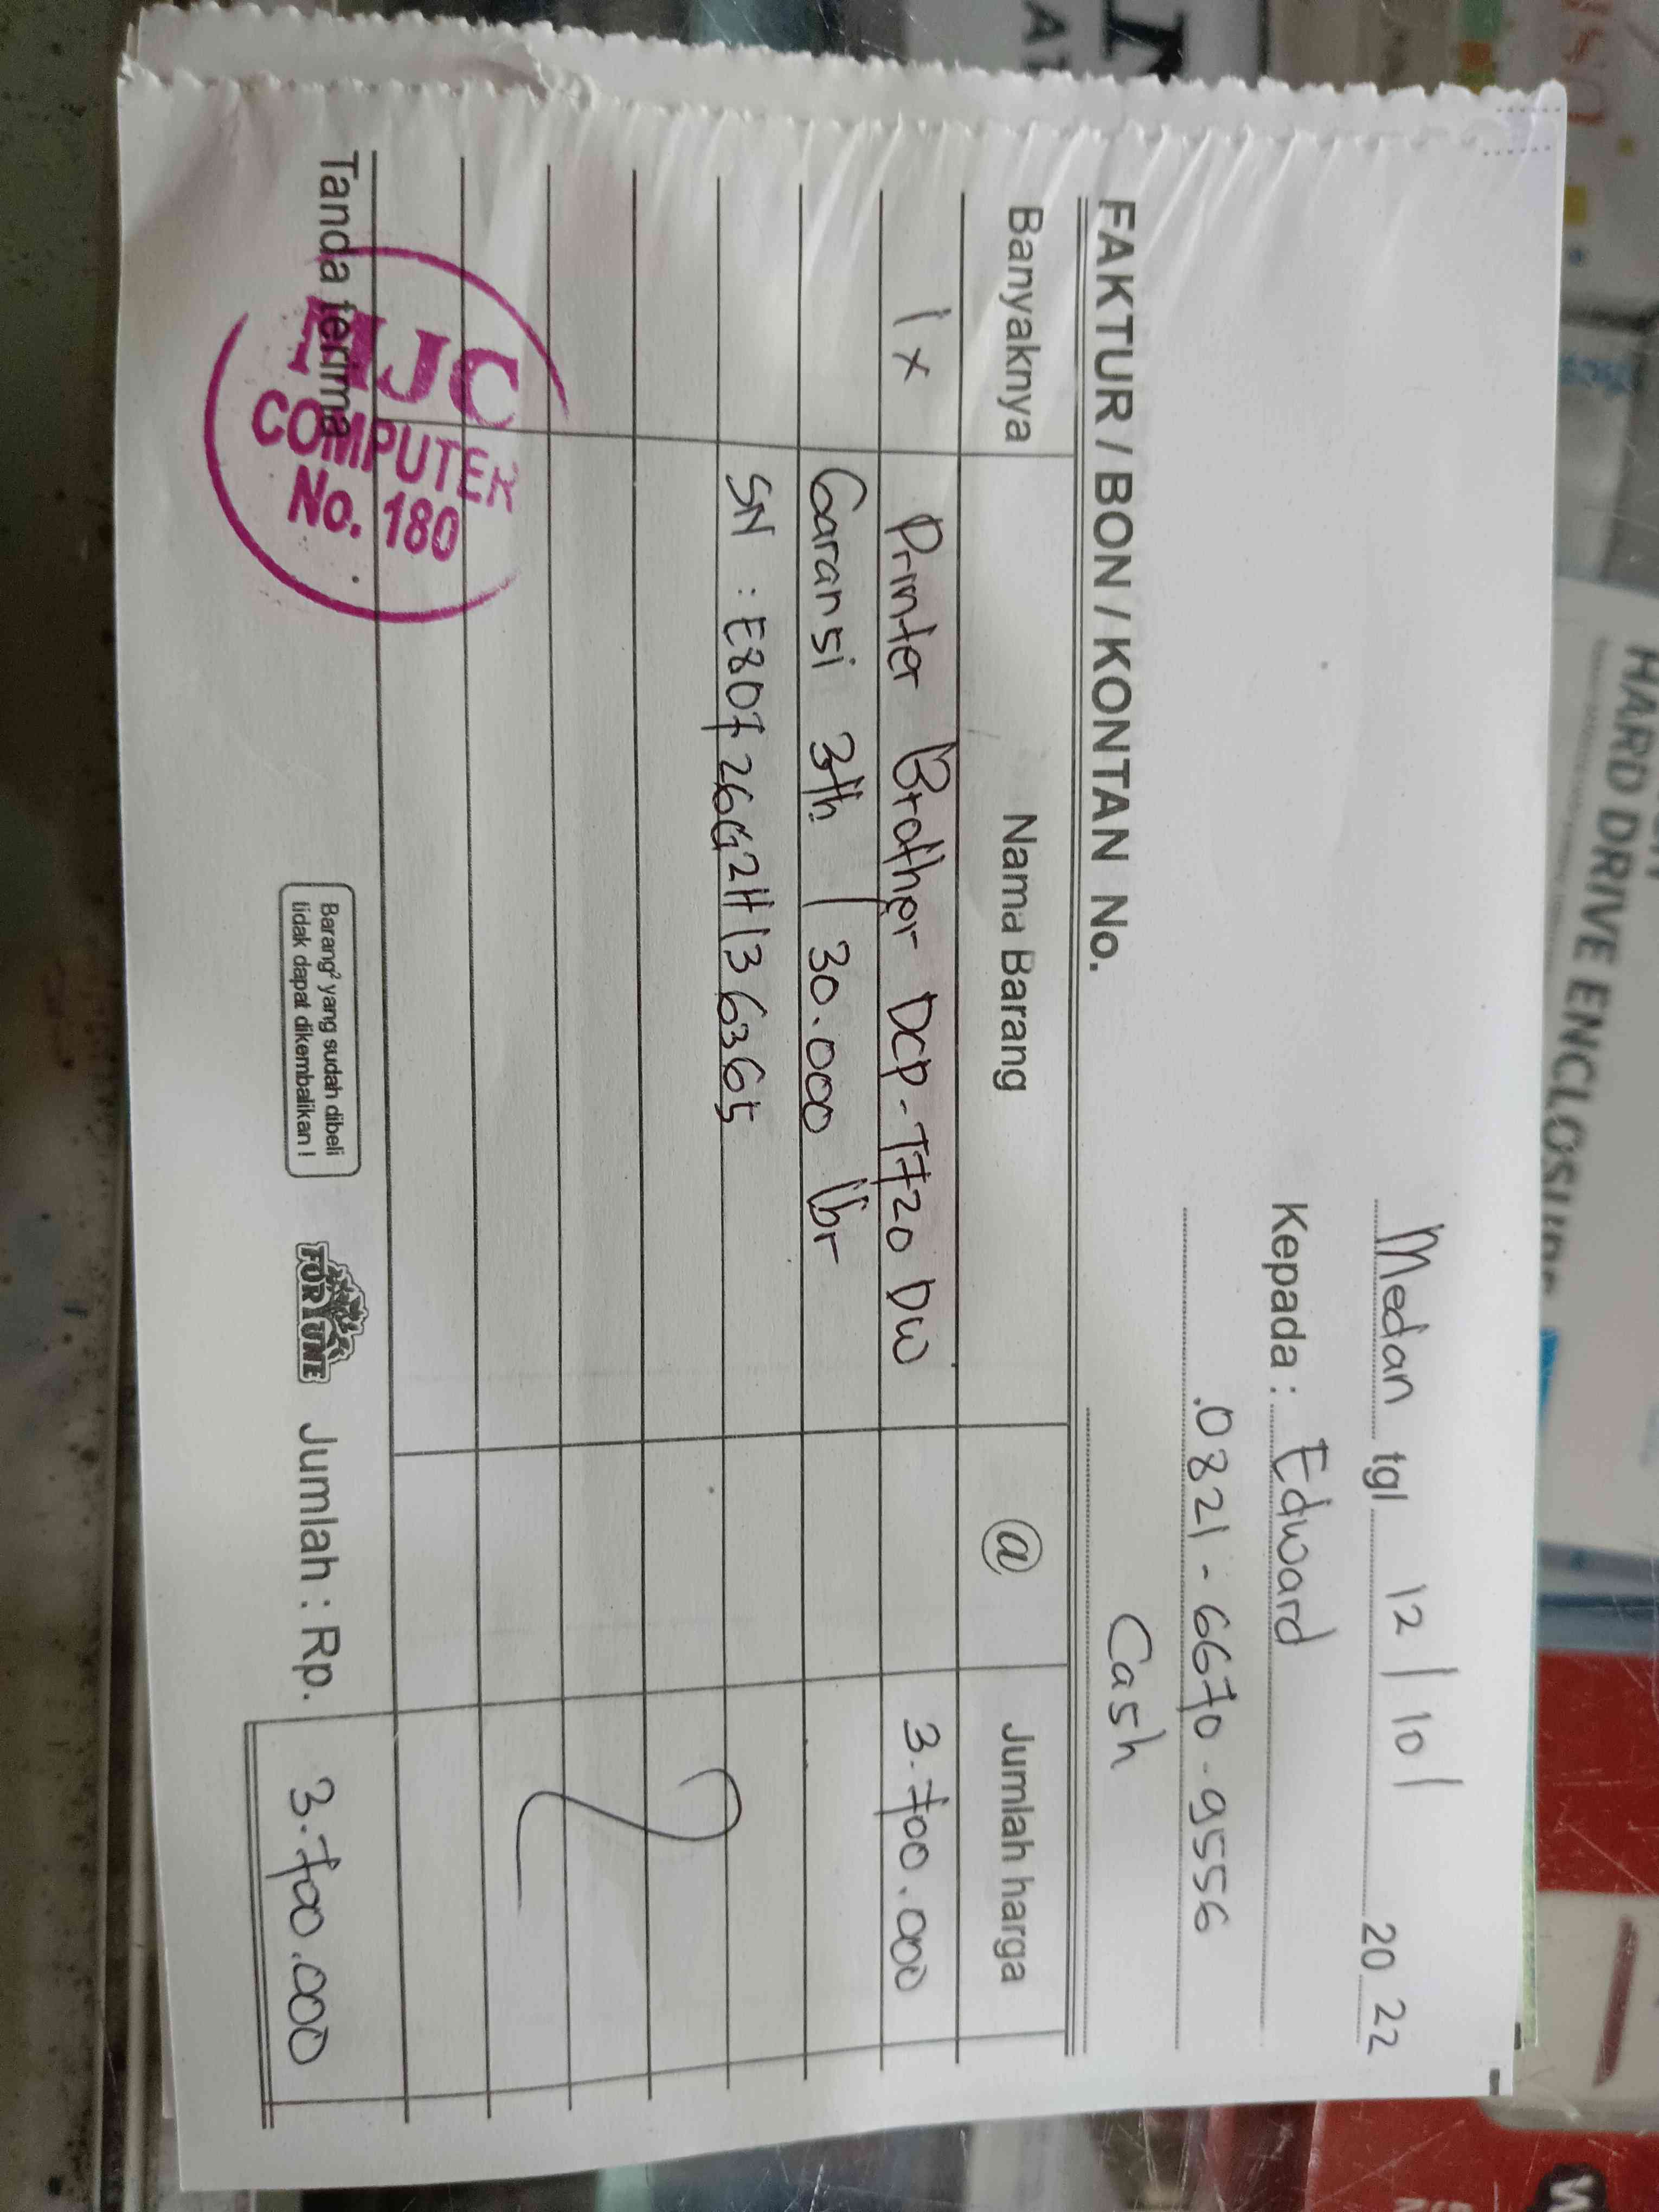 Medan tgl 12/10/ 2022
Kepada : Edward
0821-6670-9556
FAKTUR / BON / KONTAN No.
Cash
Banyaknya Nama Barang @ Jumlah harga
1x Printer Brother DCP-T720 DW 3.700.000
Garansi 3th / 30.000 lbr
SN : E80726G2H136365
Tanda terima
MJC
COMPUTER
No. 180
Barang² yang sudah dibeli
tidak dapat dikembalikan !
FORTUNE
Jumlah : Rp. 3.700.000
HARD DRIVE ENCLOSURE